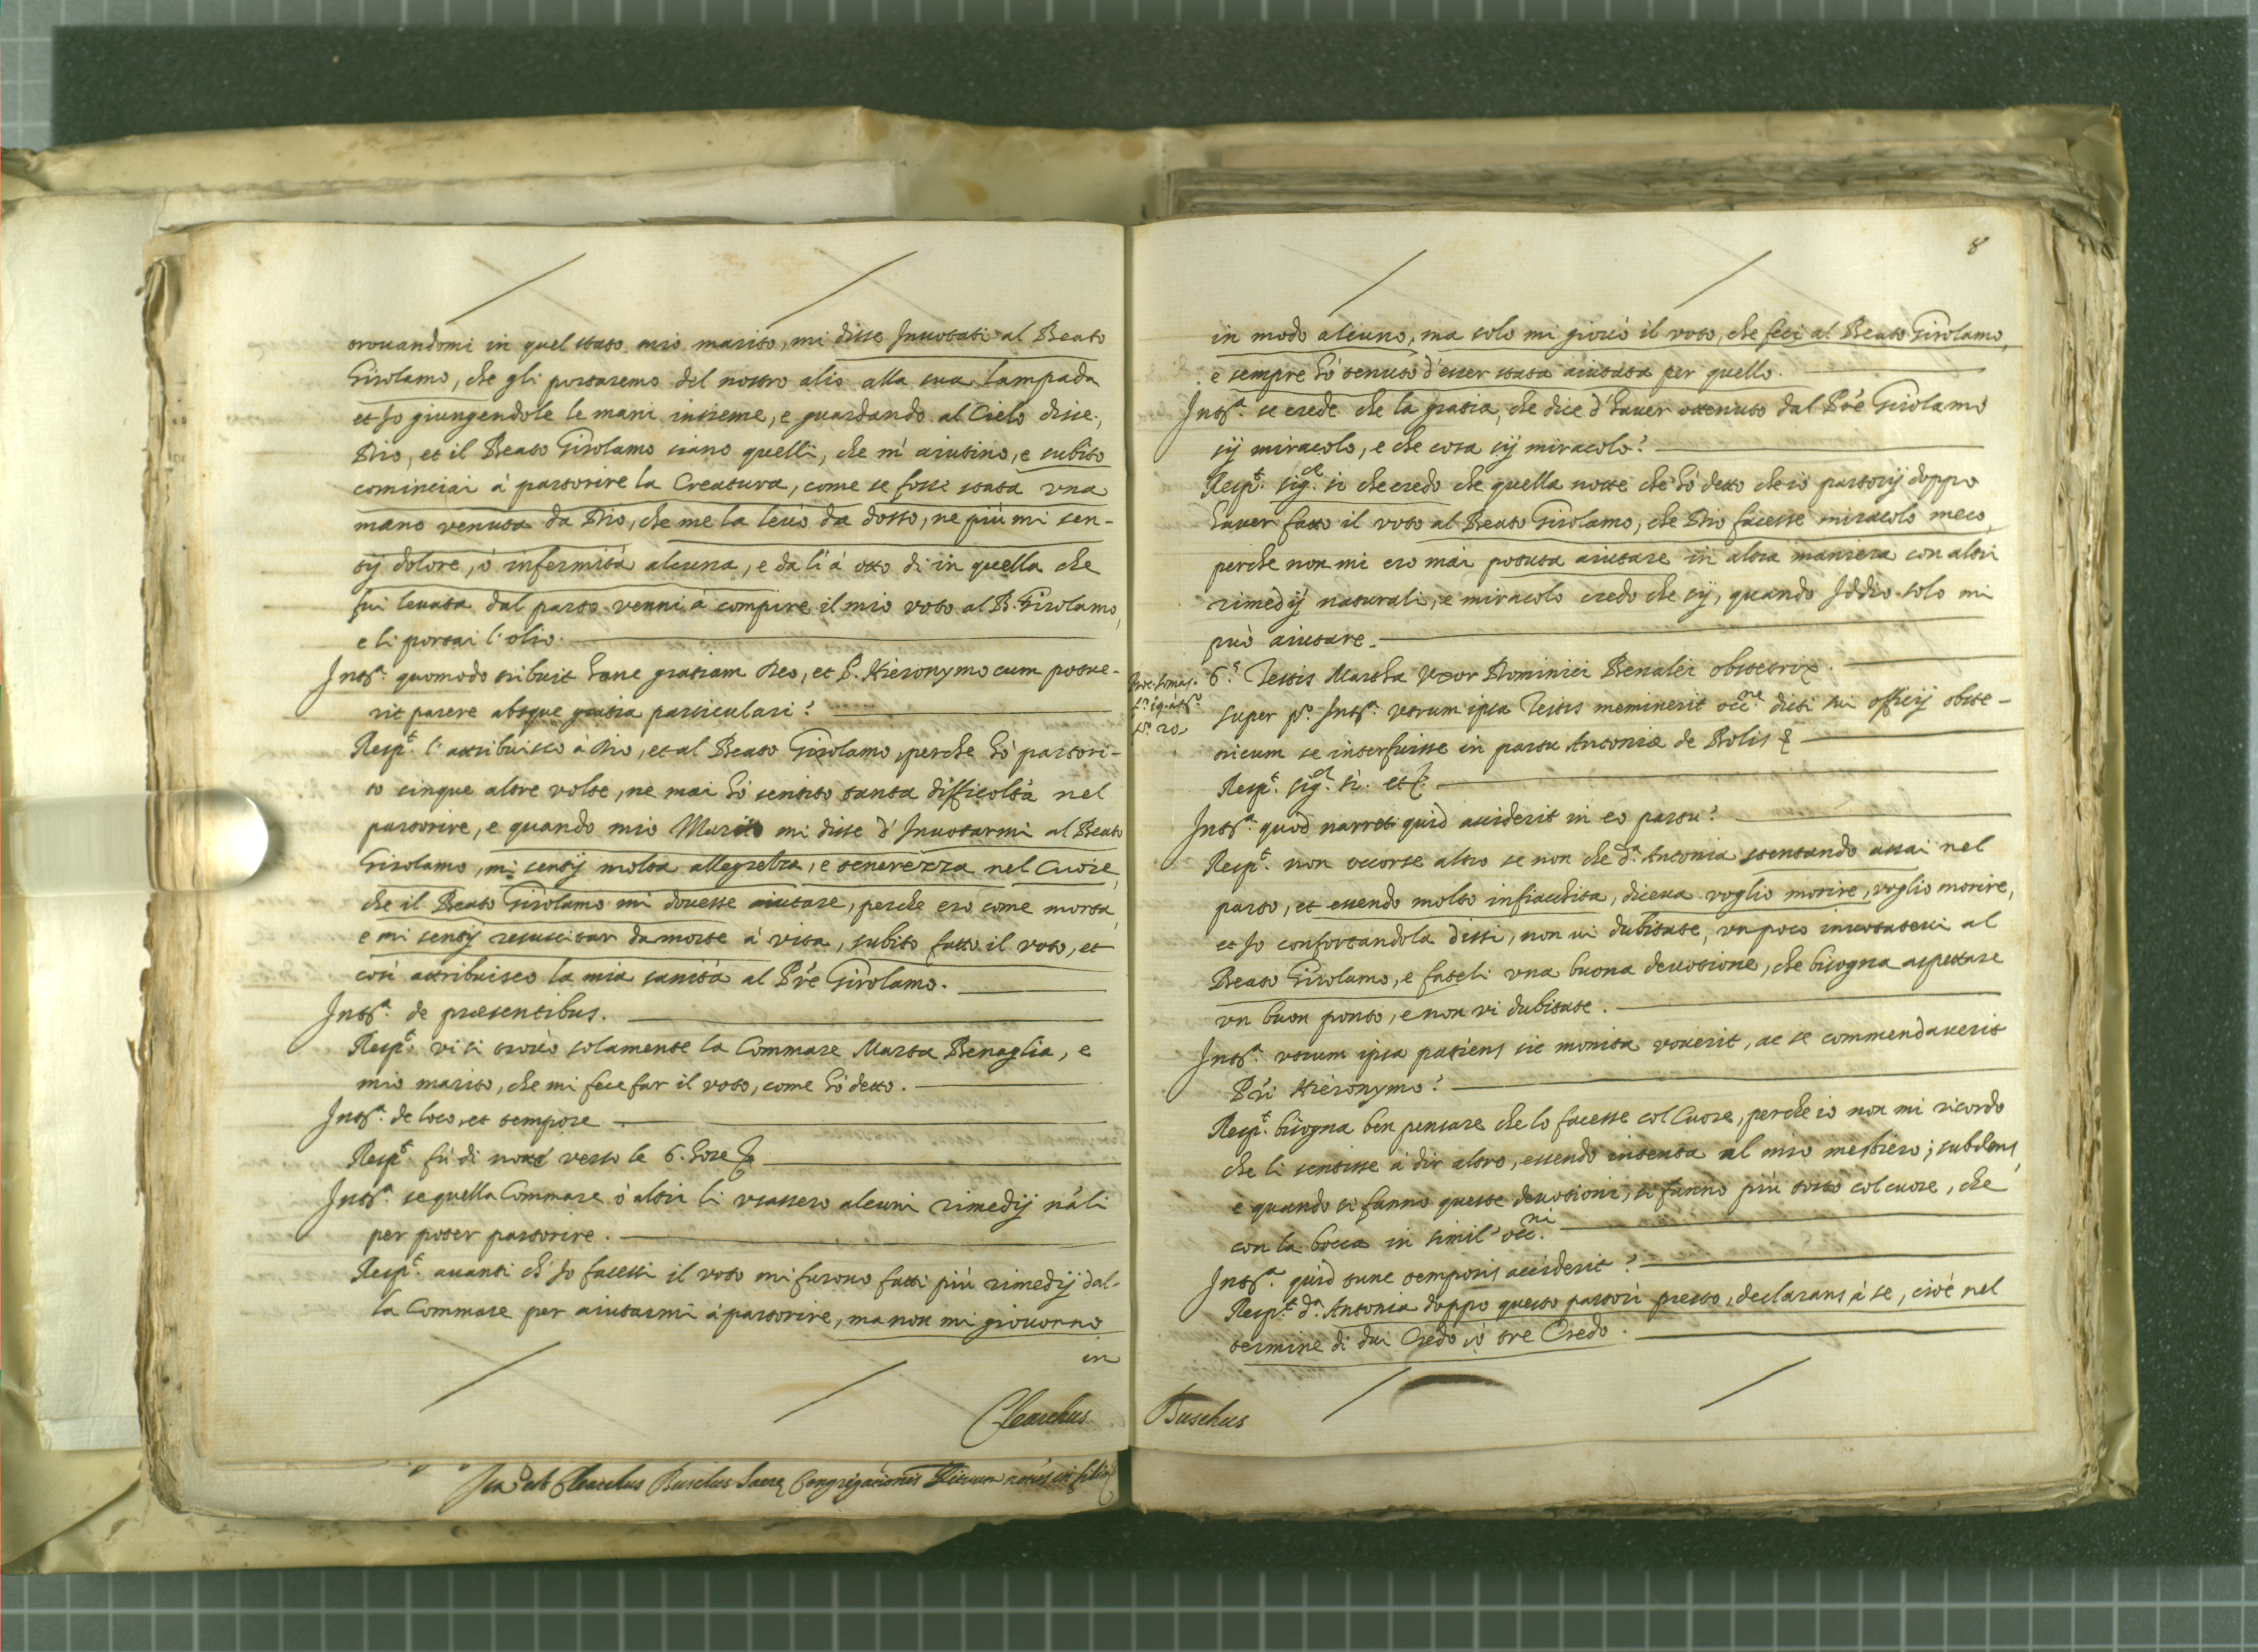 trouandomi in quel stato mio marito, mi disse Inuotati al Beato
Girolamo, che gli portaremo del nostro olio alla sua lampada
et Io giungendole le mani insieme, e guardando al Cielo dissi,
Dio, et il Beato Girolamo siano quelli, che m' aiutino, e subito
cominciai à partorire la Creatura, come se fosse stata vna
mano venuta da Dio, che me la leuò da dosso, ne più mi sen-
tij dolore, ò infermità alcuna, e da lì à otto dì in quella che
fui leuata dal parto venni à compire il mio voto al B. Girolamo,
e li portai l' olio.
Intª. quomodo tribuit hanc gratiam Deo, et B. Hieronymo cum potue-
rit parere absque gratia particulari?
Respᵗ. l' attribuisco à Dio, et al Beato Girolamo, perche hò partori-
to cinque altre volte, ne mai hò sentito tanta difficoltà nel
partorire, e quando mio Marito mi disse d' Inuotarmi al Beato
Girolamo, mi sentij molta allegrezza, e tenerezza nel Cuore,
che il Beato Girolamo mi douesse aiutare, perche ero come morta,
e mi sentij resuscitar da morte à vita, subito fatto il voto, et
così attribuisco la mia sanità al Prē Girolamo.
Intª. de præsentibus.
Respᵗ. vi si trouò solamente la Commare Marta Benaglia, e
mio marito, che mi fece far il voto, come hò detto.
Intª. de loco, et tempore
Respᵗ. fù di notte verso le 6. hore
Intª. se quella Commare ò altri li vsassero alcuni rimedij nāli
per poter partorire.
Respᵗ. auanti ch' Io facessi il voto mi furono fatti più rimedij dal-
la Commare per aiutarmi à partorire, ma non mi giouorno
in
Clearchus
Ita est Clearchus Buschus Sacræ Congregationis Rituum notūs in fidem
8
in modo alcuno, ma solo mi giouò il voto, che feci al Beato Girolamo,
e sempre hò tenuto d'esser stata aiutata per quello.
Intª. se crede che la gratia, che dice d' hauer ottenuto dal Prē Girolamo
sij miracolo, e che cosa sij miracolo?
Respᵗ. sigᵒʳ. si che credo che quella notte che hò detto che io partorij doppo
hauer fatto il voto al Beato Girolamo, che Dio facesse miracolo meco,
perche non mi ero mai potuta aiutare in altra maniera con altri
rimedij naturali, e miracolo credo che sij, quando Iddio solo mi
può aiutare.
6.ˢ Testis Martha Vxor Dominici Benalei obstetrix.
super pº. Intª. vtrum ipsa Testis meminerit occⁿᵉ dicti sui officij obste-
tricum se interfuisse in partu Antoniæ de Rolis
Respᵗ. sigᵒʳ. sì. et
Intª. quod narret quid acciderit in eo partu?
Respᵗ. non occorse altro se non che dª. Antonia stentando assai nel
parto, et essendo molto infiacchita, diceua voglio morire, voglio morire,
et Io confortandola dissi, non vi dubitate, vn poco inuotateui al
Beato Girolamo, e fateli vna buona deuotione, che bisogna aspettare
vn buon ponto, e non vi dubitate.
Intª. vtrum ipsa patiens sic monita vouerit, ac se commendauerit
Prī Hieronymo?
Respᵗ. bisogna ben pensare che lo facesse col Cuore, perche io non mi ricordo
che li sentisse à dir altro, essendo intenta al mio mestiero; subdens
e quando si fanno queste deuotioni, si fanno più tosto col cuore, che
con la bocca in simil' occⁿⁱ.
Intª. quid tunc temporis acciderit?
Respᵗ. dª. Antonia doppo questo partorì presto, declarans à se, cioè nel
termine di dui Credo ò tre Credo.
Buschus